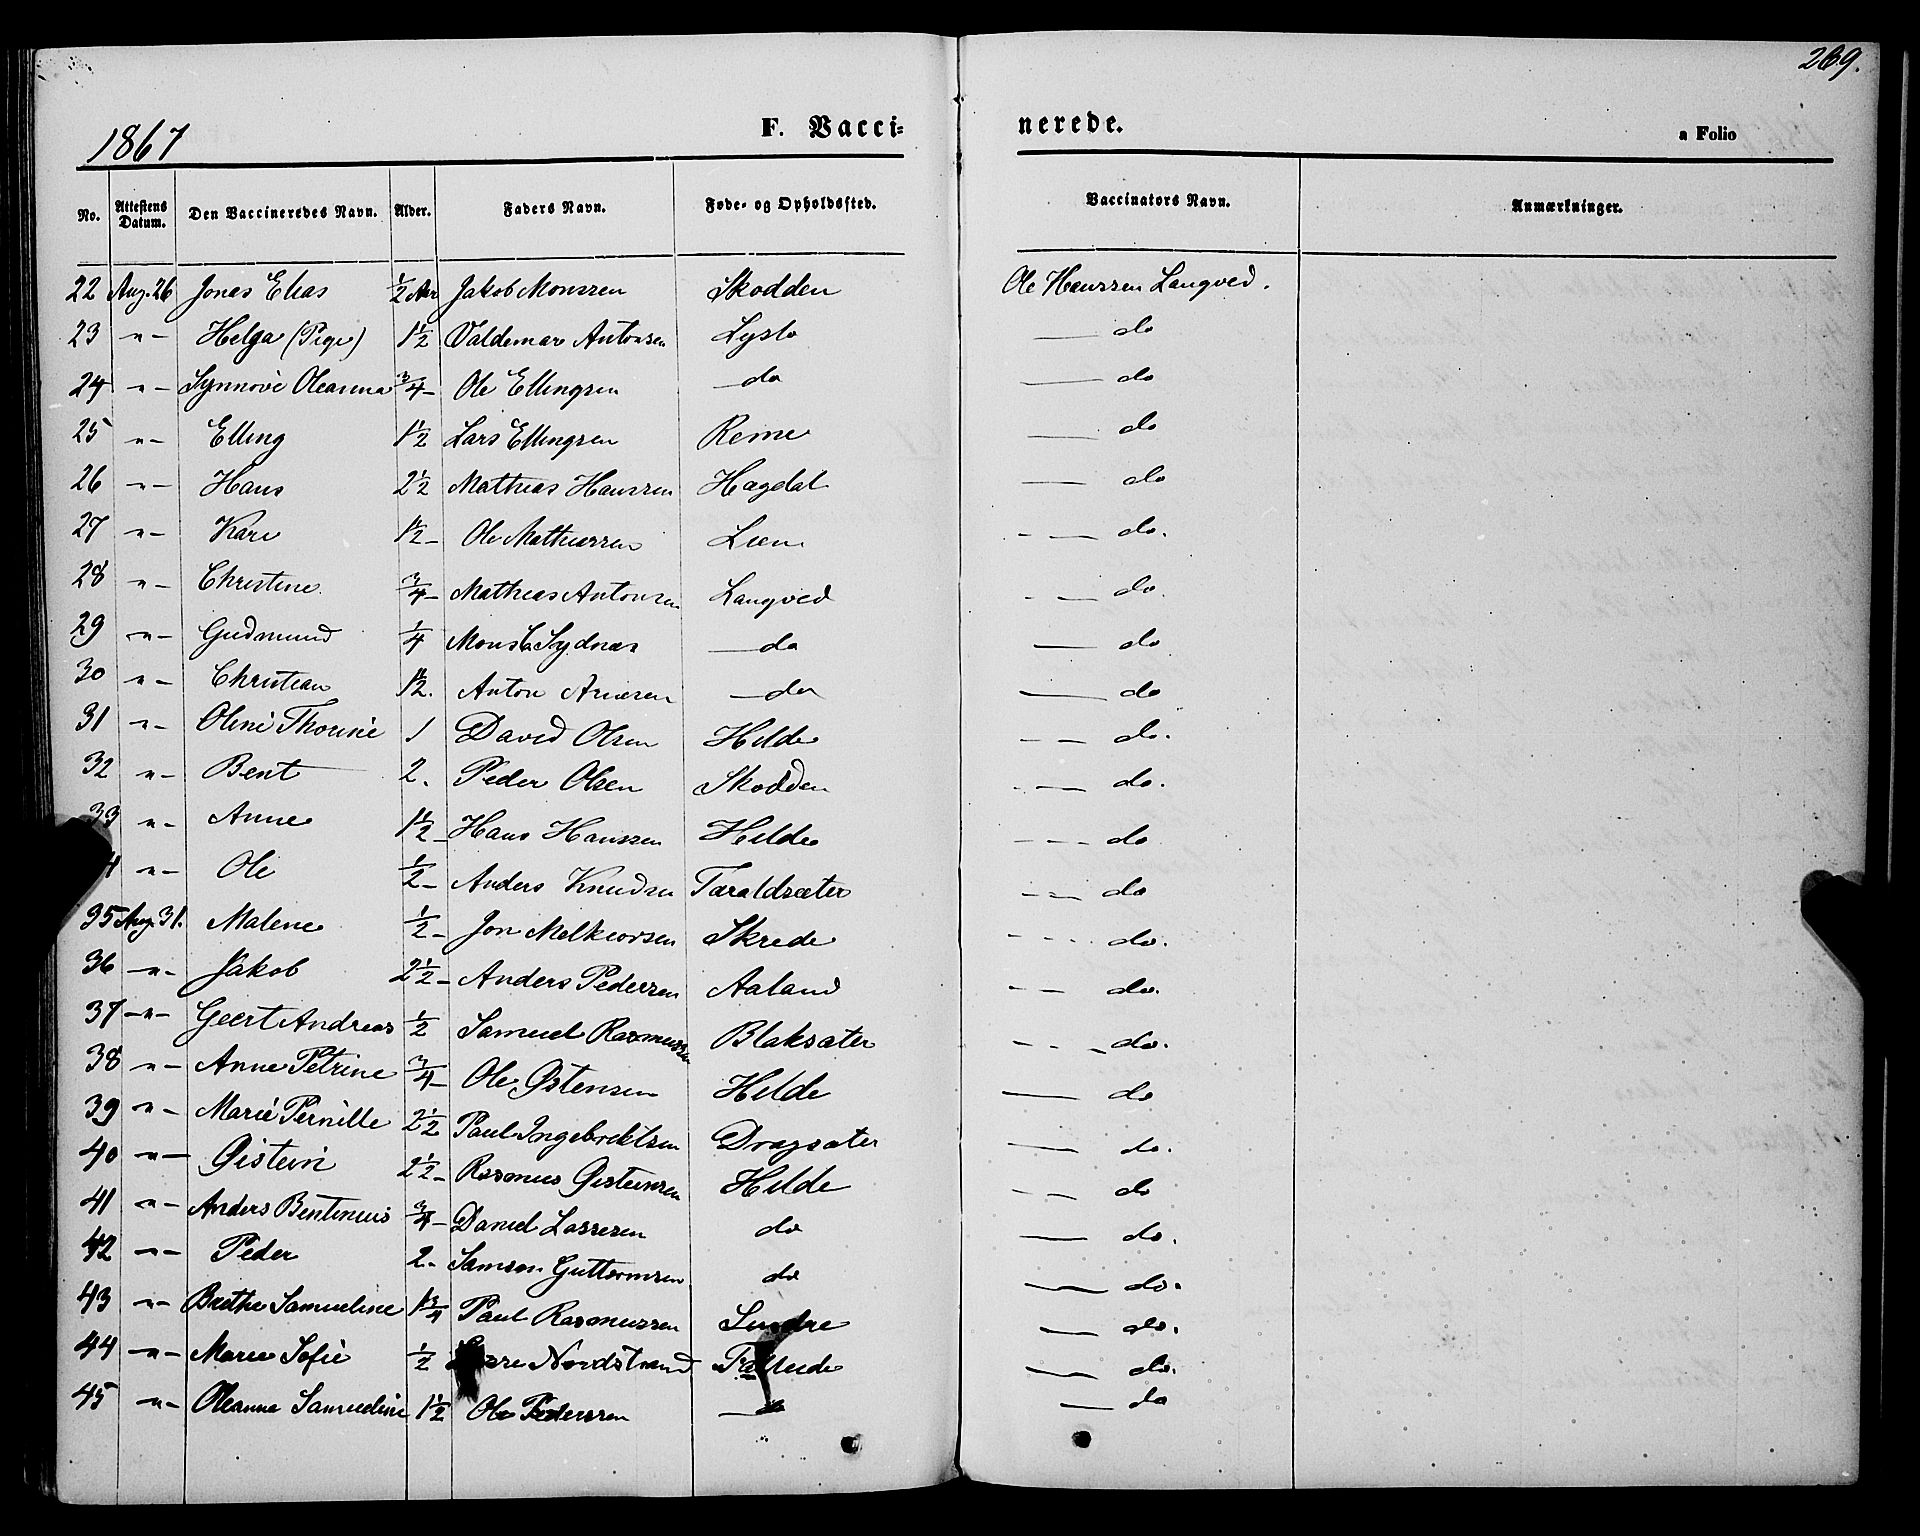 269.
1867
F. Vacci-
nerede.
a Folio
No. Attestens Datum. Den Vaccineredes Navn. Alder. Faders Navn. Føde- og Opholdssted. Vaccinators Navn. Anmærkninger.
22 Aug. 26 Jonas Elias ½ Aar Jakob Monssen Skodden Ole Hanssen Langved.
23 -"- Helga (Pige) 1½ Valdemar Antonsen Lyslo — do
24 -"- Synnøve Oleanna ¾- Ole Ellingsen — do — do
25 -"- Elling 1½ Lars Ellingsen Reme — do
26 -"- Hans 2½ Mathias Hanssen Hagdal — do
27 -"- Kari 1½- Ole Mathiassen Leen — do.
28 -"- Christine ¾- Mathias Antonsen Langved — do.
29 -"- Gudmund ¼ Mons Sydnæs — do — do
30 -"- Christian 1½. Anton — do — do
31 -"- Oline Thorine 1 David Olsen Hilde — do.
32 -"- Bent 2. Peder Olsen Skodden — do.
33 -"- Anne 1½- Hans Hanssen Hilde — do
4 -"- Ole ½- Anders Knudsen Taraldsæter — do
35 Aug. 31. Malene ½- Jon Melkiorsen Skrede — do.
36 -"- Jakob 2½- Anders Pedersen Aaland — do.
37 -"- Geert Andreas ½ Samuel Rasmussen Blaksæter — do.
38 -"- Anne Petrine ¾- Ole Østensen Hilde — do
39 -"- Marie Pernille 2½ Paul Ingebrektsen Dragsæter — do.
40 -"- Øistein 2½- Rasmus Øisteinsen Hilde — do
41 -"- Anders Bentinus ¾- Daniel Lassesen do — do.
42 -"- Peder 2- Samson Guttormsen do — do.
43 -"- Brethe Samueline 1¾ Paul Rasmussen Sindre — do.
44 -"- Marie Sofie ½ Lasse Nordstrand — do.
45 -"- Oleanna Samueline 1½ Ole Pederssen — do